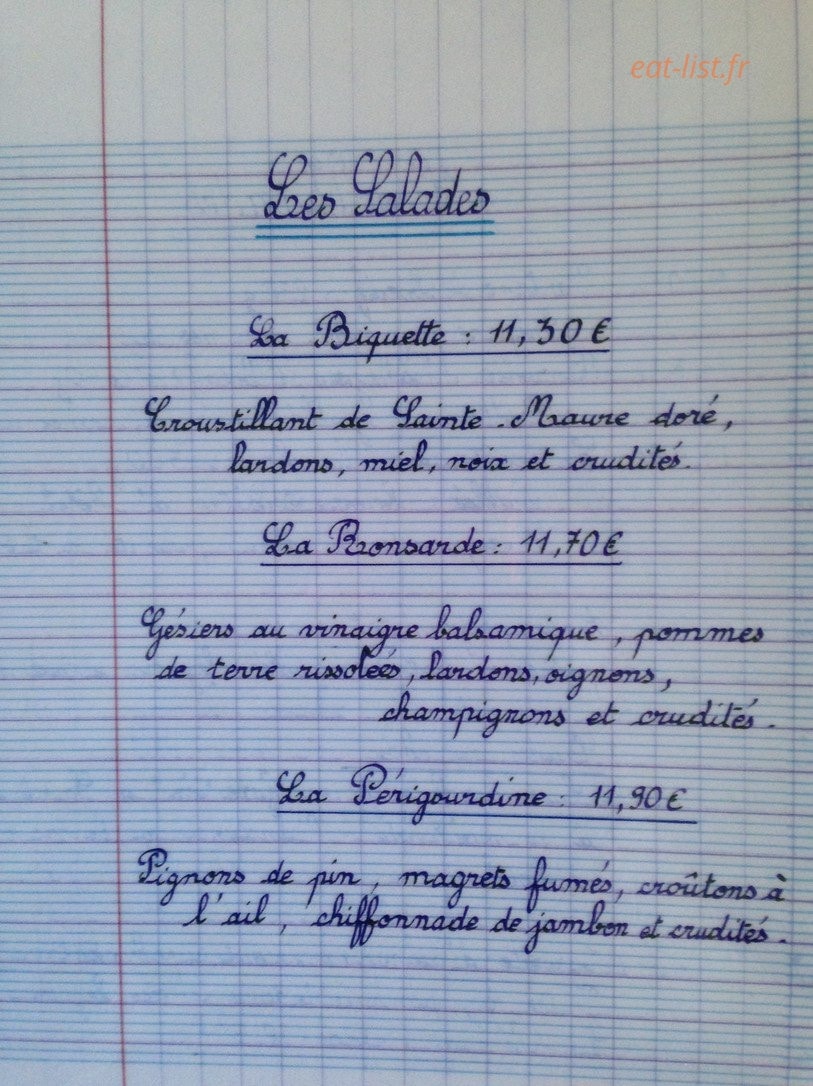 eat-list.fr
Les Salades
La Biquette : 11,30 €
Croustillant de Sainte-Maure doré,
lardons, miel, noix et crudités.
La Ronsarde : 11,70 €
Gésiers au vinaigre balsamique, pommes
de terre rissolées, lardons, oignons,
champignons et crudités.
La Périgourdine : 11,90 €
Pignons de pin, magrets fumés, croûtons à
l'ail, chiffonnade de jambon et crudités.